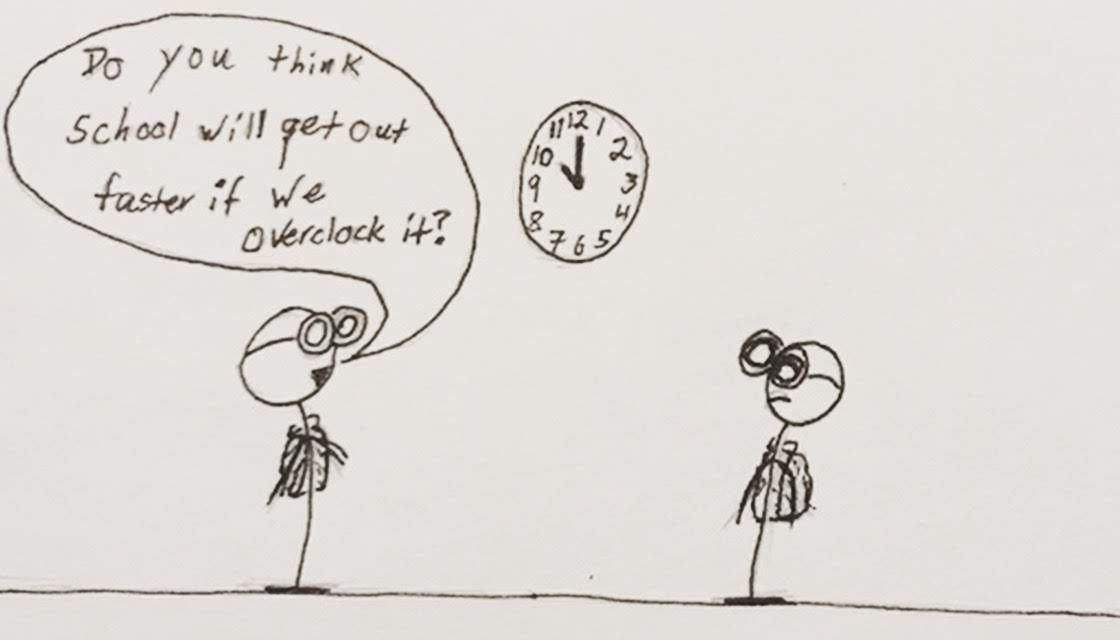 Do you think
School will get out
faster if we
overclock it?
11 12 1
10 2
9 3
8 4
7 6 5